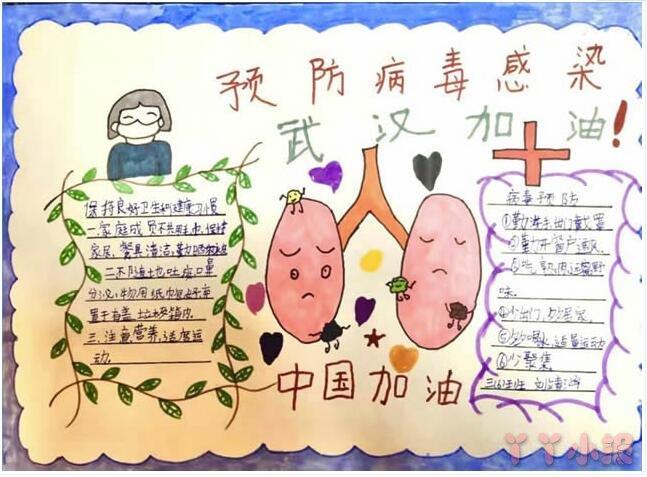 预防病毒感染
武汉加油!
保持良好卫生和健康习惯
一家庭成员不共用毛巾,保持
家居、餐具清洁,勤晒
二不随地吐痰口鼻
分泌物用纸巾包好弃
置于有盖垃圾箱内
三、注意营养,适度运
动.
病毒预防
①勤洗手出门戴罩
②勤开窗户通风
味.
④少出门,
⑤多喝水,适量运动
⑥少聚集
中国加油
丫丫小报